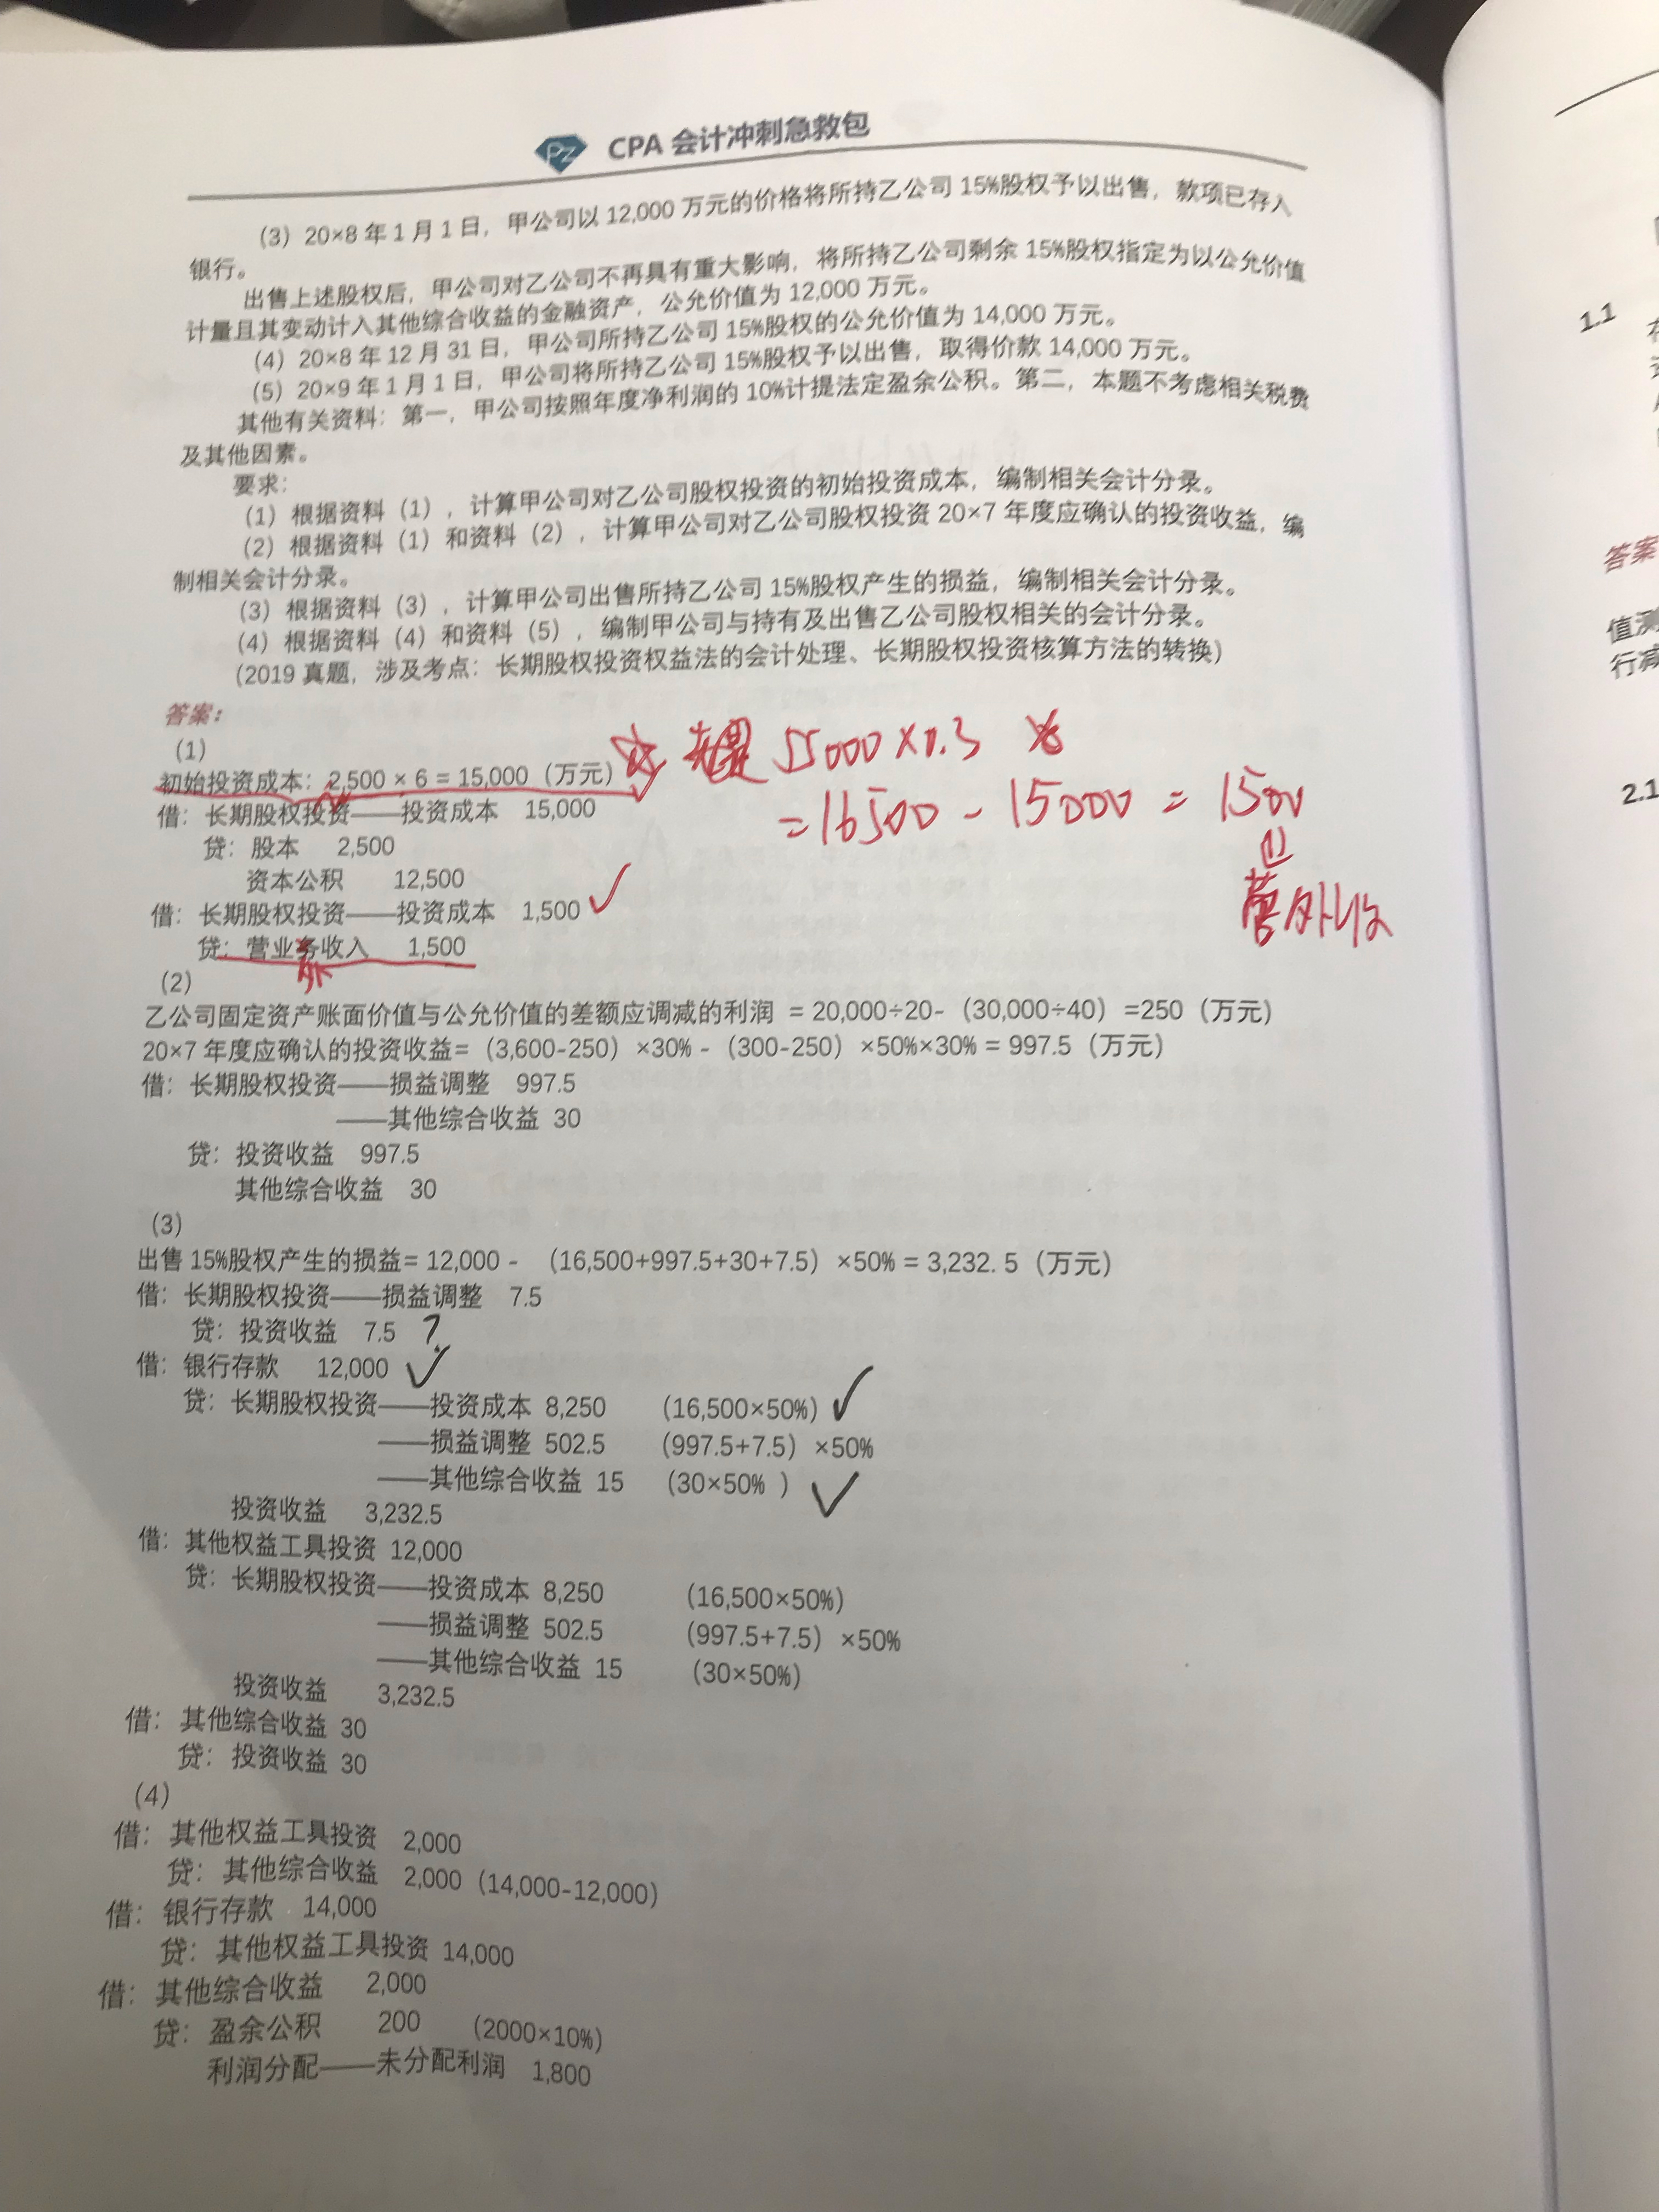 PZ CPA 会计冲刺急救包
(3) 20×8 年 1 月 1 日，甲公司以 12,000 万元的价格将所持乙公司 15%股权予以出售，款项已存入
银行。
出售上述股权后，甲公司对乙公司不再具有重大影响，将所持乙公司剩余 15%股权指定为以公允价值
计量且其变动计入其他综合收益的金融资产，公允价值为 12,000 万元。
(4) 20×8 年 12 月 31 日，甲公司所持乙公司 15%股权的公允价值为 14,000 万元。
(5) 20×9 年 1 月 1 日，甲公司将所持乙公司 15%股权予以出售，取得价款 14,000 万元。
其他有关资料：第一，甲公司按照年度净利润的 10%计提法定盈余公积。第二，本题不考虑相关税费
及其他因素。
要求：
(1) 根据资料（1），计算甲公司对乙公司股权投资的初始投资成本，编制相关会计分录。
(2) 根据资料（1）和资料（2），计算甲公司对乙公司股权投资 20×7 年度应确认的投资收益，编
制相关会计分录。
(3) 根据资料（3），计算甲公司出售所持乙公司 15%股权产生的损益，编制相关会计分录。
(4) 根据资料（4）和资料（5），编制甲公司与持有及出售乙公司股权相关的会计分录。
(2019 真题，涉及考点：长期股权投资权益法的会计处理、长期股权投资核算方法的转换)
答案：
(1)
初始投资成本：2,500 × 6 = 15,000（万元） 55000×0.3
借：长期股权投资——投资成本 15,000 =16500-15000=1500
贷：股本 2,500
资本公积 12,500
借：长期股权投资——投资成本 1,500 ✓ 营外收
贷：营业务收入 1,500
外
(2)
乙公司固定资产账面价值与公允价值的差额应调减的利润 = 20,000÷20-（30,000÷40）=250（万元）
20×7 年度应确认的投资收益=（3,600-250）×30% -（300-250）×50%×30% = 997.5（万元）
借：长期股权投资——损益调整 997.5
——其他综合收益 30
贷：投资收益 997.5
其他综合收益 30
(3)
出售 15%股权产生的损益= 12,000 - （16,500+997.5+30+7.5）×50% = 3,232. 5（万元）
借：长期股权投资——损益调整 7.5
贷：投资收益 7.5 ?
借：银行存款 12,000 ✓
贷：长期股权投资——投资成本 8,250 (16,500×50%) ✓
——损益调整 502.5 (997.5+7.5）×50%
——其他综合收益 15 (30×50% ) ✓
投资收益 3,232.5
借：其他权益工具投资 12,000
贷：长期股权投资——投资成本 8,250 (16,500×50%)
——损益调整 502.5 (997.5+7.5）×50%
——其他综合收益 15 (30×50%)
投资收益 3,232.5
借：其他综合收益 30
贷：投资收益 30
(4)
借：其他权益工具投资 2,000
贷：其他综合收益 2,000（14,000-12,000）
借：银行存款 14,000
贷：其他权益工具投资 14,000
借：其他综合收益 2,000
贷：盈余公积 200 (2000×10%)
利润分配——未分配利润 1,800
1.1
答案
值测
行减
2.1